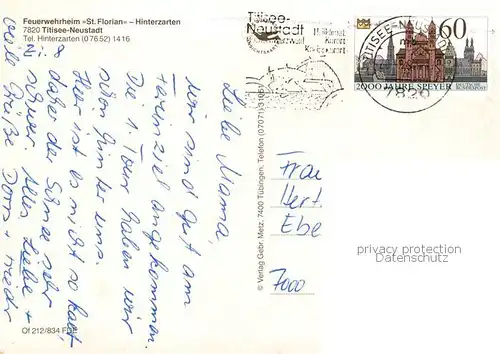 Feuerwehrheim »St. Florian« – Hinterzarten
7820 Titisee-Neustadt
Tel. Hinterzarten (0 76 52) 14 16
Liebe Mama,
wir sind gut am
Ferienziel angekommen.
Die 1. Tour haben wir
schon hinter uns.
Hier ist es nicht so kalt,
daher der Schnee sehr
schwer. Alles Liebe +
viele Grüße
Of 212/834 FDE
© Verlag Gebr. Metz, 7400 Tübingen, Telefon (07071) 31051
Titisee-
Neustadt
Heilklimat.
Kurort
Kneippkurort
TITISEE-NEUSTADT
7820
60
2000 JAHRE SPEYER
DEUTSCHE
BUNDESPOST
Frau
Hert.
Ebe
7000
privacy protection
Datenschutz